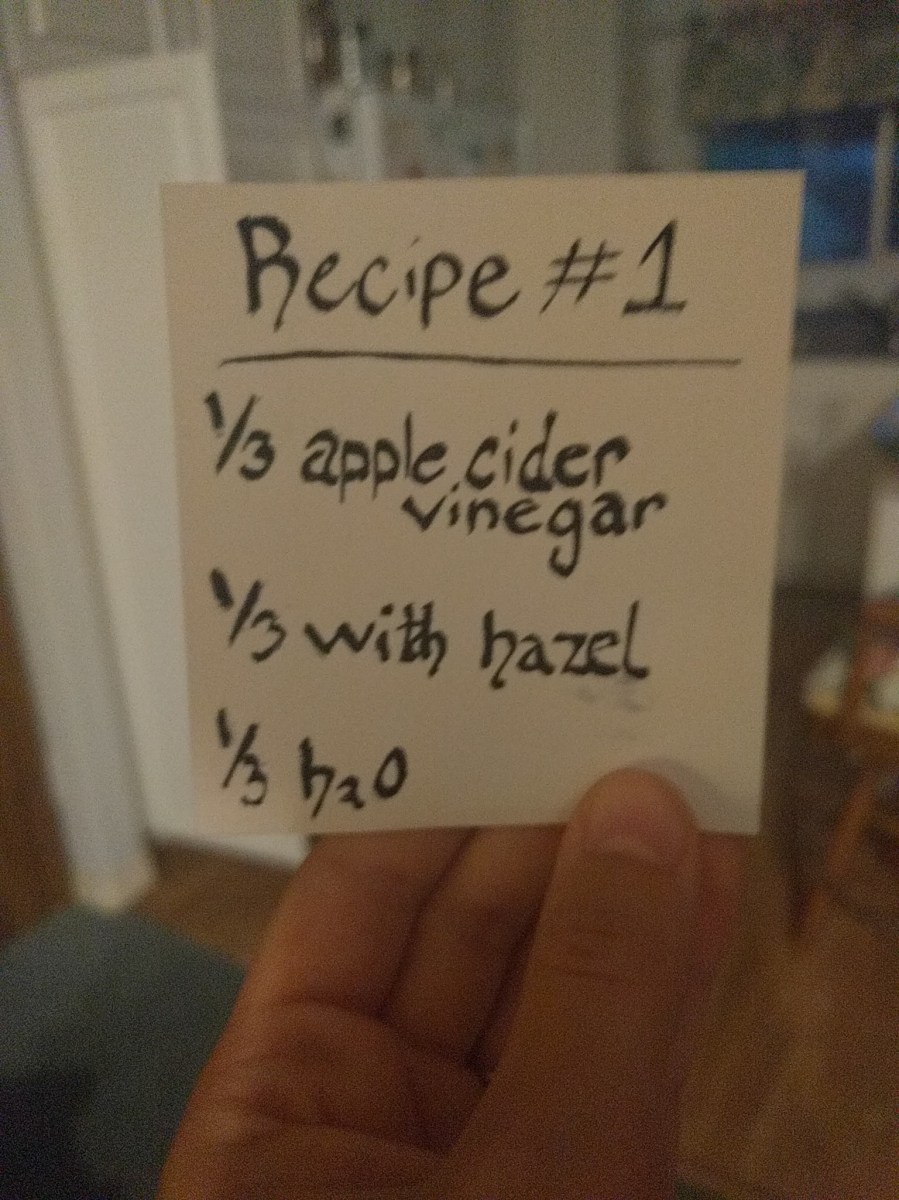 Recipe #1
1/3 apple cider
vinegar
1/3 with hazel
1/3 h2O